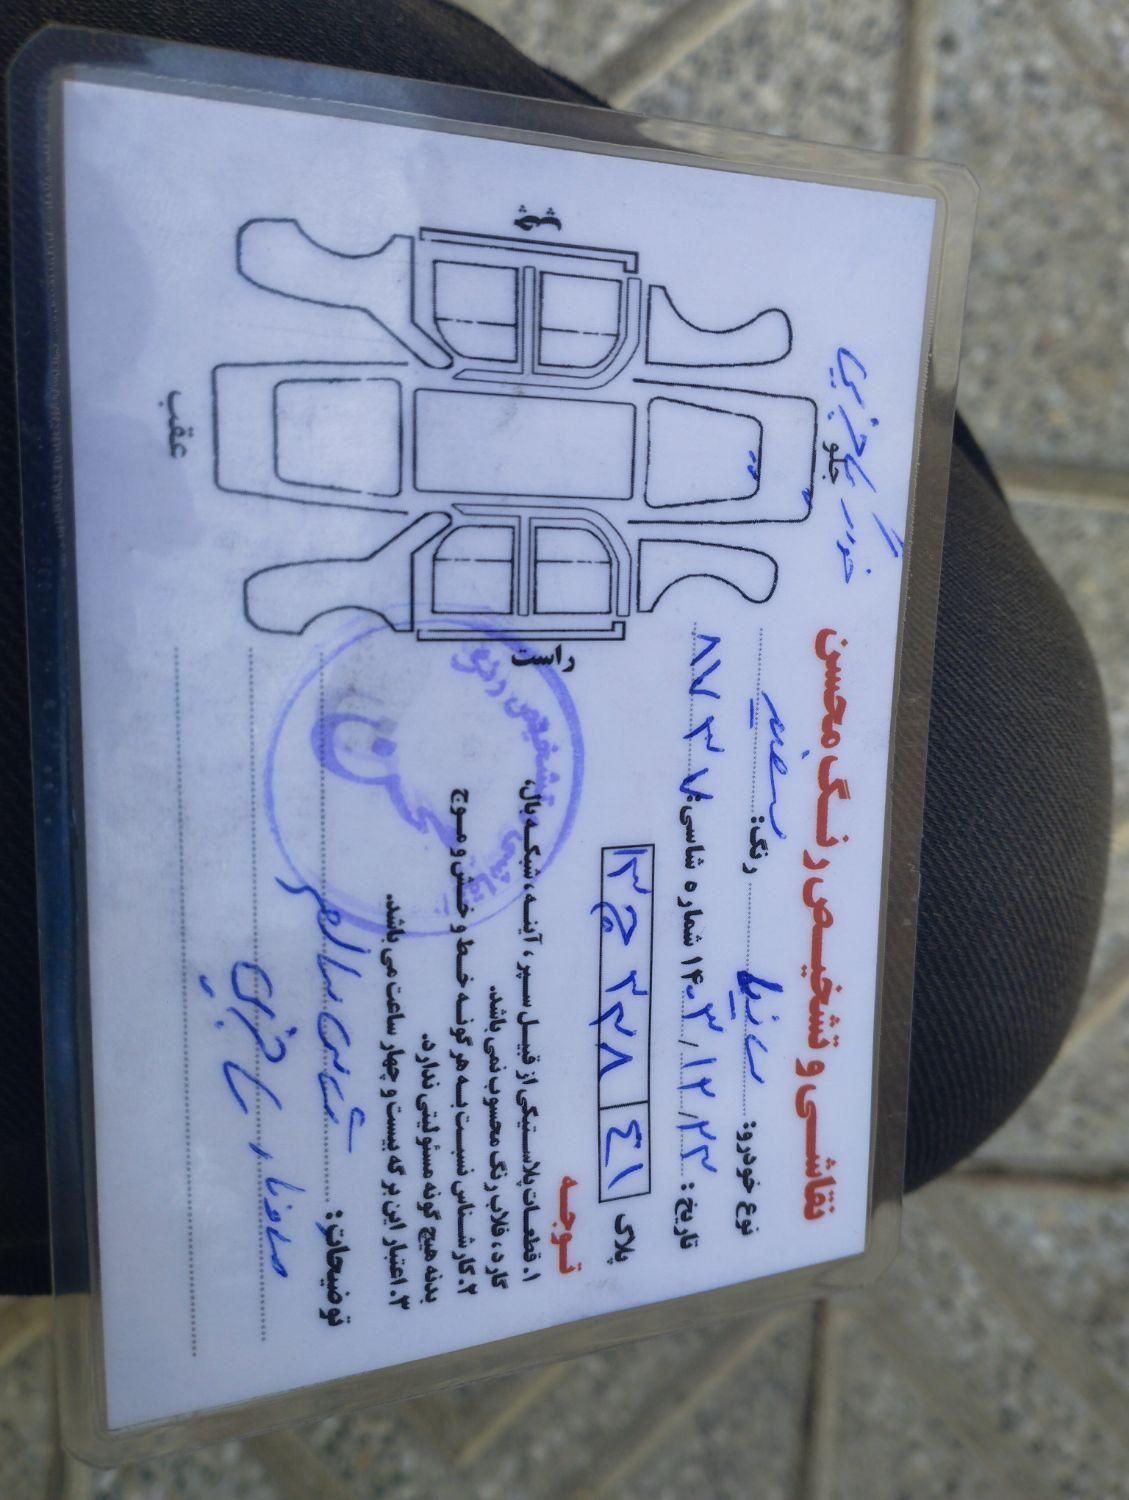 نقاشی و تشخیص رنگ محسن
نوع خودرو: ساینا رنگ: سفید
تاریخ: ۱۴۰۳/۱۲/۲۳ شماره شاسی: ۸۷۳۷
پلاک ۱۳ ج ۲۳۸ ۴۱
توجه
۱. قطعات پلاستیکی از قبیل سپر، آینه، شبکه بال،
گارد، قلاب رنگ محسوب نمی باشد.
۲. کارشناس نسبت به هر گونه خط و خش و موج
بدنه هیچ گونه مسئولیتی ندارد.
۳. اعتبار این برگه بیست و چهار ساعت می باشد.
توضیحات: شاسی سالم
جلو
عقب
چپ
راست
تشخیص رنگ
نقاشی
محسن